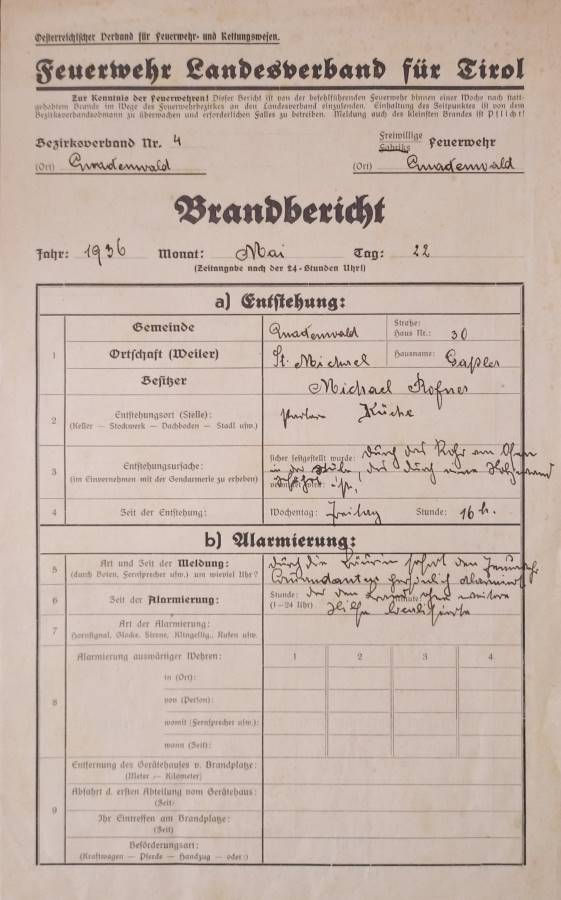 Oesterreichischer Verband für Feuerwehr- und Rettungswesen.
Feuerwehr Landesverband für Tirol
Zur Kenntnis der Feuerwehren! Dieser Bericht ist von der befehlführenden Feuerwehr binnen einer Woche nach statt-
gehabtem Brande im Wege des Feuerwehrbezirkes an den Landesverband einzusenden. Einhaltung des Zeitpunktes ist von dem
Bezirksverbandsobmann zu überwachen und erforderlichen Falles zu betreiben. Meldung auch des kleinsten Brandes ist Pflicht!
Bezirksverband Nr. 4 Freiwillige Fabriks- Feuerwehr
(Ort) Gnadenwald (Ort) Gnadenwald
Brandbericht
Jahr: 1936 Monat: Mai Tag: 22
(Zeitangabe nach der 24-Stunden Uhr!)
a) Entstehung:
1 Gemeinde Gnadenwald Straße: Haus Nr.: 30
Ortschaft (Weiler) St. Michael Hausname: Gaßler
Besitzer Michael Rofner
2 Entstehungsort (Stelle): Küche
(Keller — Stockwerk — Dachboden — Stadl usw.)
3 Entstehungsursache: sicher festgestellt wurde: durch das Rohr am Ofen
(im Einvernehmen mit der Gendarmerie zu erheben) in der Stube, das durch eine Holzwand
ist.
4 Zeit der Entstehung: Wochentag: Freitag Stunde: 16 h.
b) Alarmierung:
5 Art und Zeit der Meldung: durch die Bäurin sofort den
(durch Boten, Fernsprecher usw.) um wieviel Uhr? persönlich alarmiert
6 Zeit der Alarmierung: Stunde: der den weitere
(1—24 Uhr) Minute Hilfe
7 Art der Alarmierung:
Hornsignal, Glocke, Sirene, Klingellig., Rufen usw.
8 Alarmierung auswärtiger Wehren: 1 2 3 4
in (Ort):
von (Person):
womit (Fernsprecher usw.):
wann (Zeit):
9 Entfernung des Gerätehauses v. Brandplatze:
(Meter — Kilometer)
Abfahrt d. ersten Abteilung vom Gerätehaus:
(Zeit)
Ihr Eintreffen am Brandplatze:
(Zeit)
Beförderungsart:
(Kraftwagen — Pferde — Handzug — oder:)